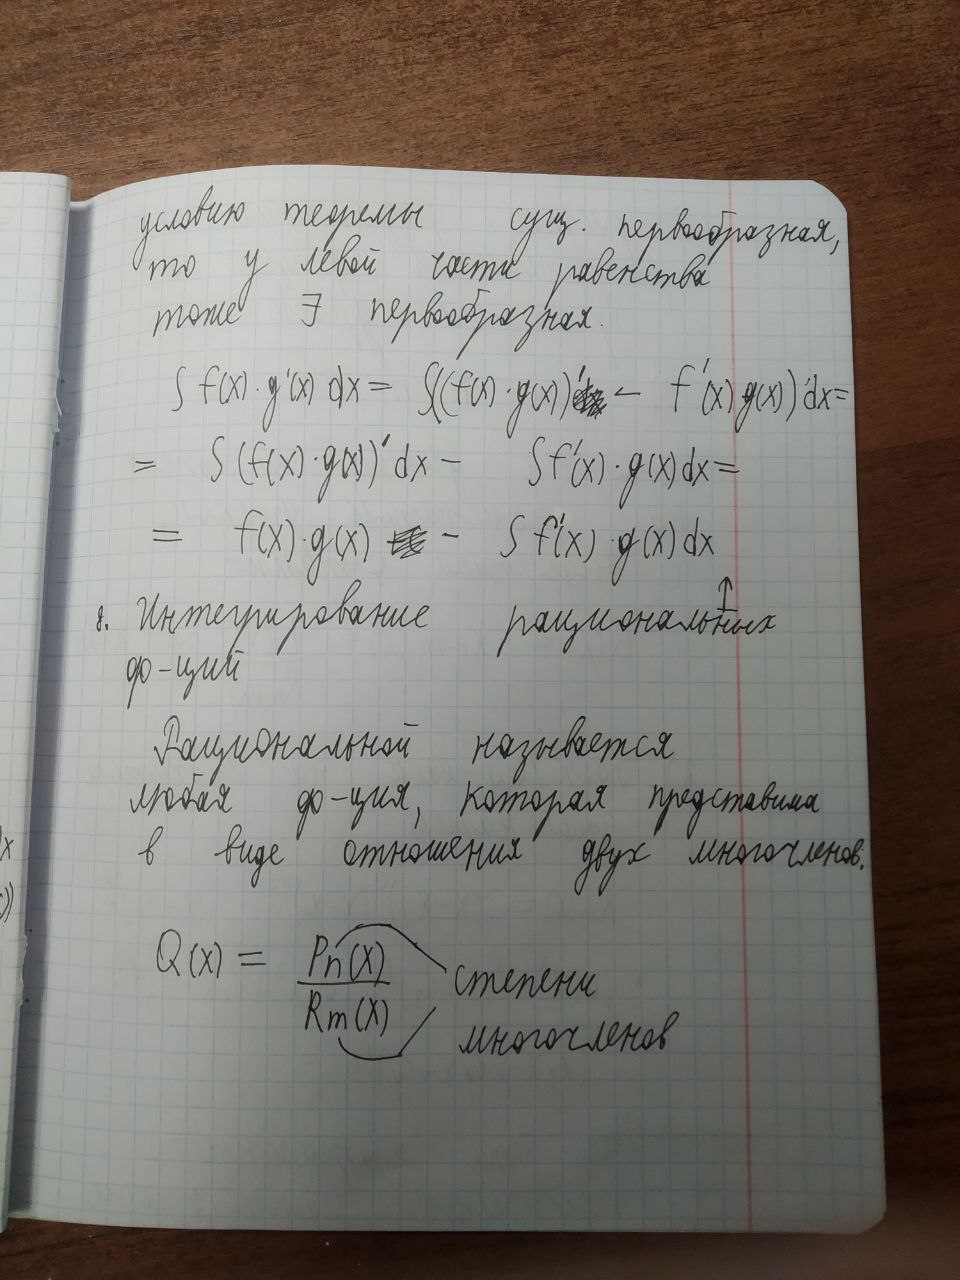 условию теоремы сущ. первообразная,
то у левой части равенства
тоже ∃ первообразная.
∫ f(x)·g'(x) dx = ∫((f(x)·g(x))' − f'(x) g(x)) dx =
= ∫ (f(x)·g(x))' dx − ∫ f'(x)·g(x) dx =
= f(x)·g(x) − ∫ f'(x)·g(x) dx
8. Интегрирование рациональных
ф-ций
Рациональной называется
любая ф-ция, которая представима
в виде отношения двух многочленов.
Q(x) = Pn(x) / Rm(x)
степени
многочленов